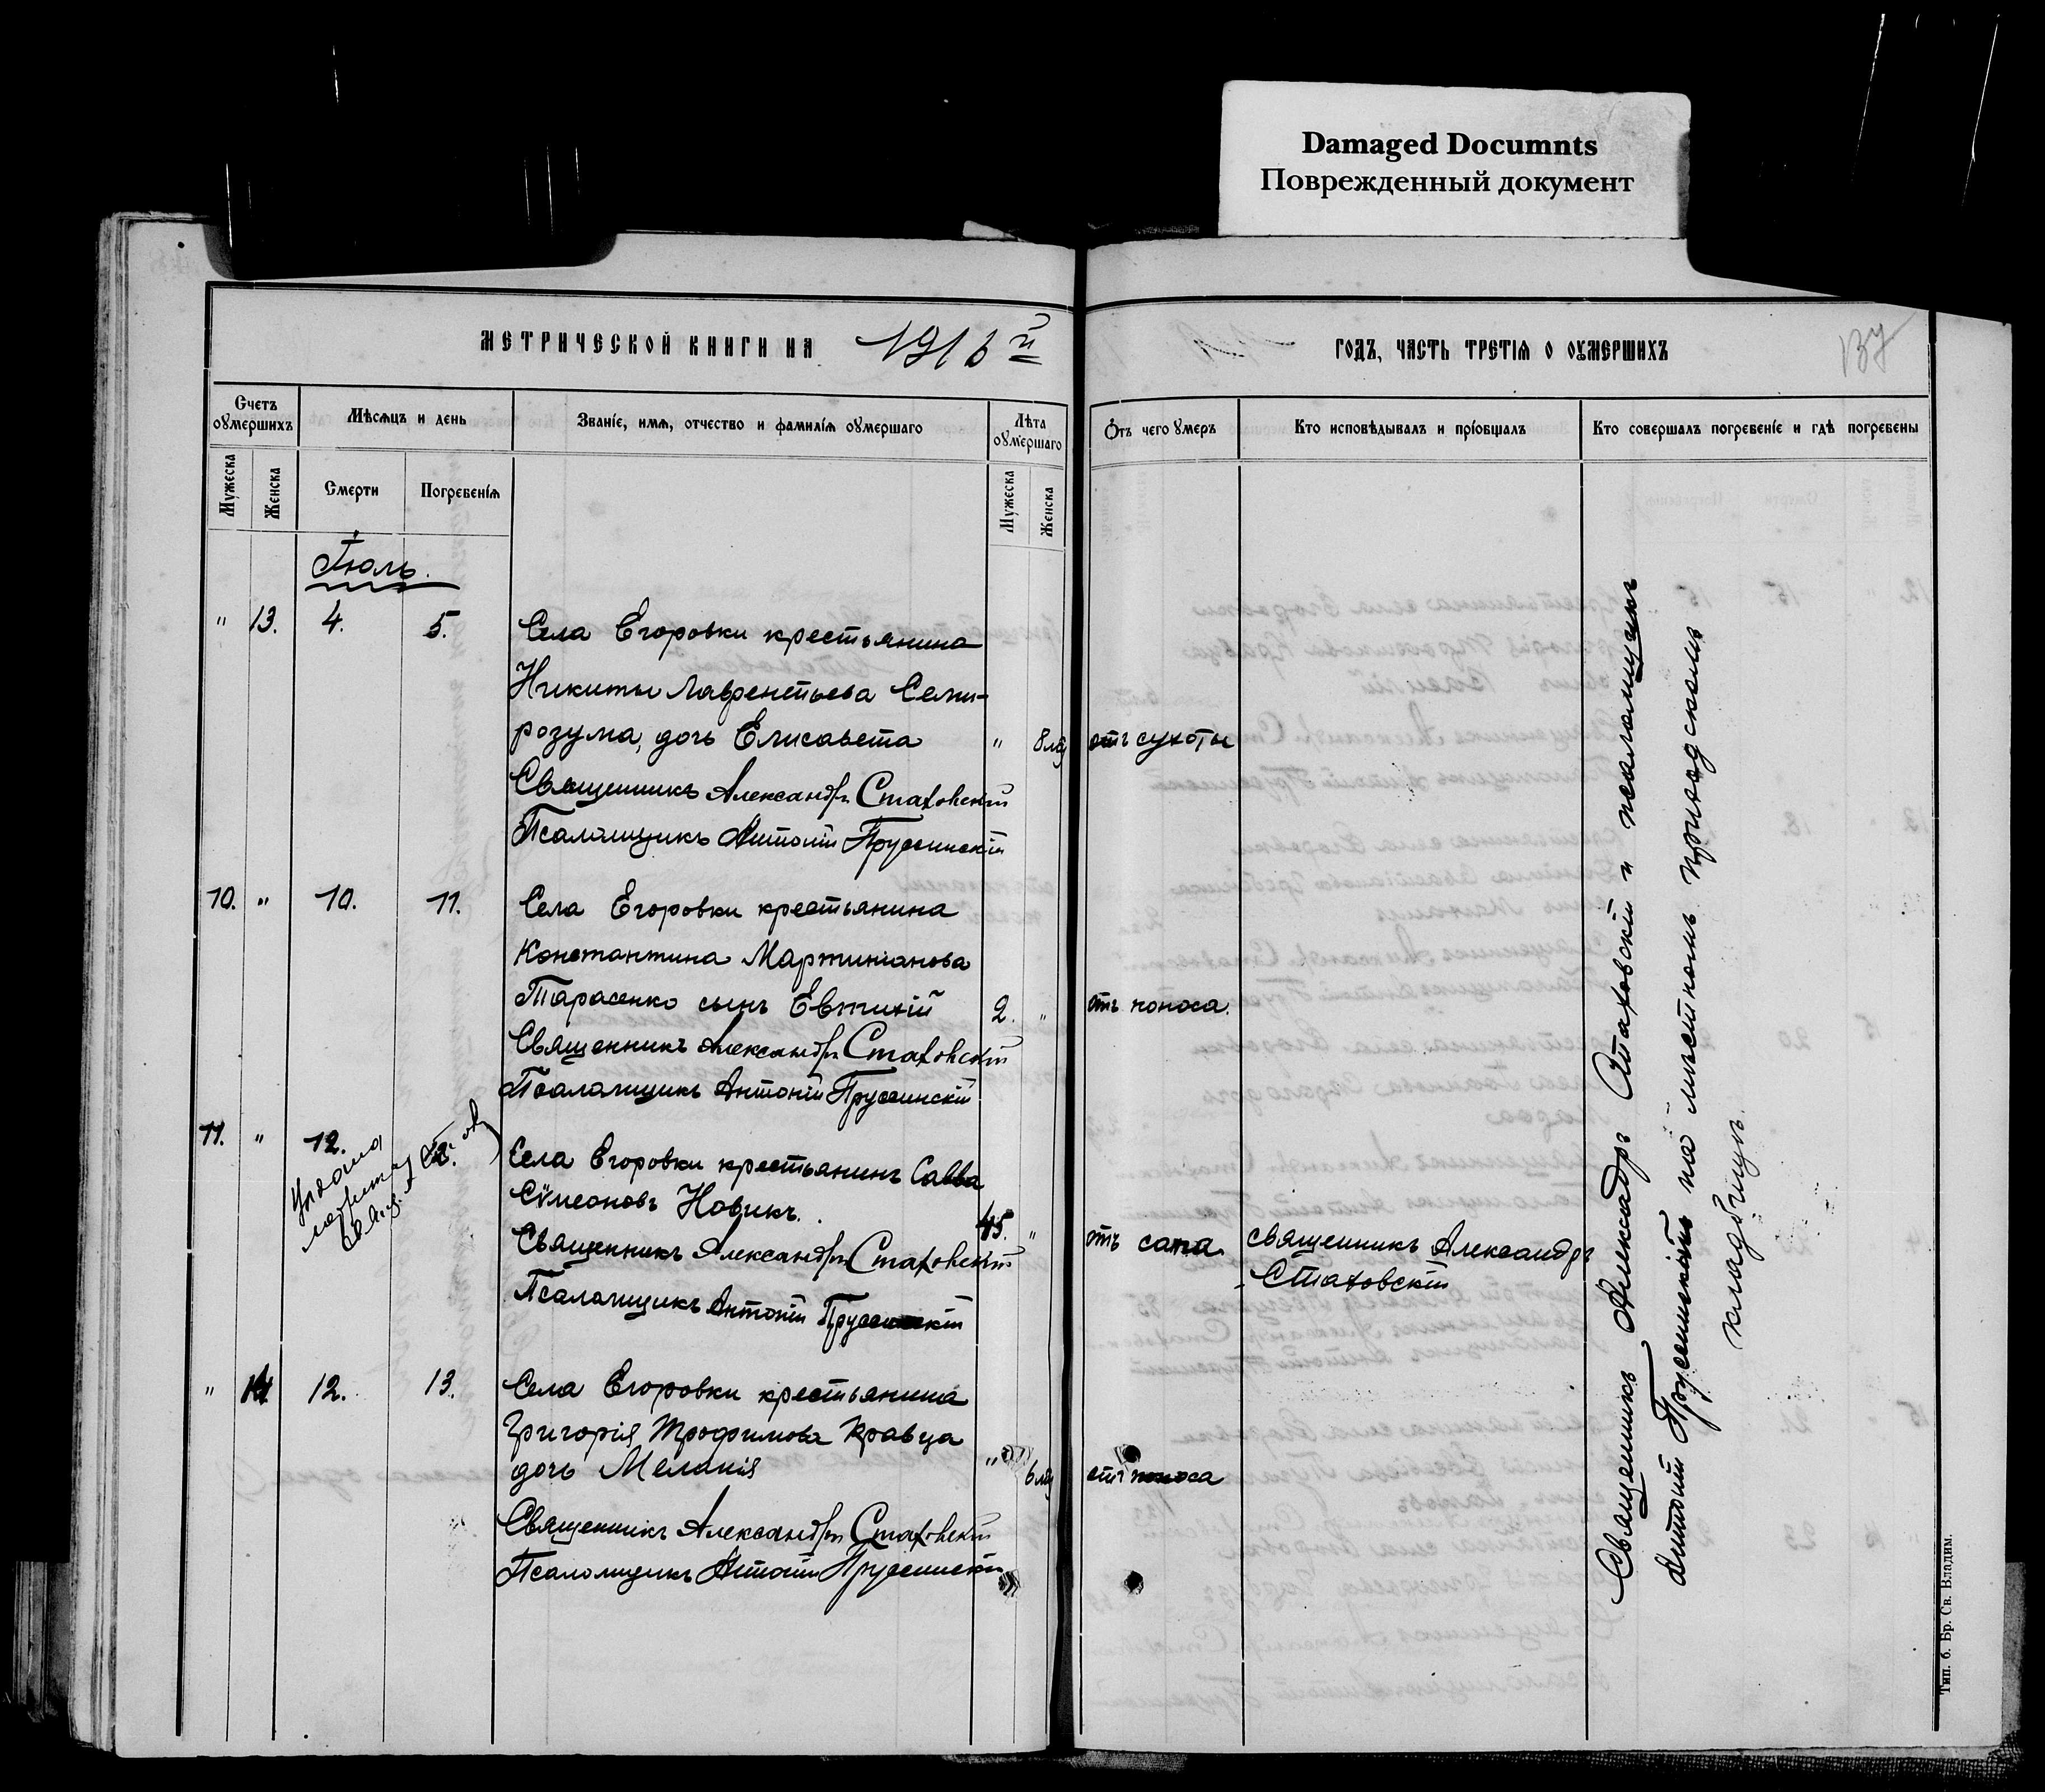 Damaged Documnts
Поврежденный документ
МЕТРИЧЕСКОЙ КНИГИ НА 1916 й
ГОДЪ, ЧАСТЬ ТРЕТІЯ О ОУМЕРШИХЪ
137
Счетъ оумершихъ
Мѣсяцъ и день
Званіе, имя, отчество и фамилія оумершаго
Лѣта оумершаго
Отъ чего умеръ
Кто исповѣдывалъ и пріобщалъ
Кто совершалъ погребеніе и гдѣ погребены
Мужеска
Женска
Смерти
Погребенія
Мужеска
Женска
Іюль.
" 13. 4. 5. Села Егоровки крестьянина
Никиты Лаврентьева Семи-
розума, дочь Елисавета " 8 отъ сухоты
Священникъ Александръ Стаховскій
Псаломщикъ Антоній Пруссинскій
10. " 10. 11. Села Егоровки крестьянина
Константина Мартиніанова
Тарасенко сынъ Евтихій 2. " отъ поноса.
Священникъ Александръ Стаховскій
Псаломщикъ Антоній Пруссинскій
11. " 12. Села Егоровки крестьянинъ Савва
Сѵмеоновъ Новикъ. 45. " отъ сапа священникъ Александръ
Стаховскій
Священникъ Александръ Стаховскій
Псаломщикъ Антоній Пруссинскій
" 14 12. 13. Села Егоровки крестьянина
Григорія Трофимова Кравца
дочь Меланія " 6 отъ поноса
Священникъ Александръ Стаховскій
Псаломщикъ Антоній Пруссинскій
Священникъ Александръ Стаховскій и псаломщикъ
Антоній Пруссинскій на мѣстномъ приходскомъ
кладбищѣ.
Тип. б. Бр. Св. Владим.